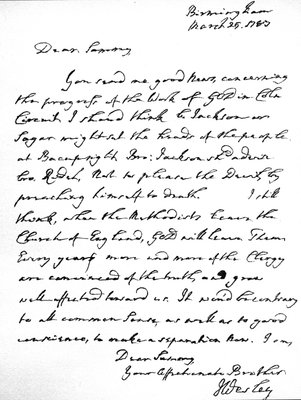 Birmingham
March 25. 1787
Dear Sammy,
You send me good News, concerning
the progress of the Work of GOD in Coln
Circuit. I should think Br Jackson or
Sagar might set the heads of the people
at Bacup right. Bro: Jackson shd advise
bro. Ridel, Not to please the Devil, by
preaching himself to death. I still
think, when the Methodists leave the
Church of England, God will leave Them.
Every year more and more of the Clergy
are convinced of the truth, and grow
well-affected toward us. It would be contrary
to all common Sense, as well as to good
conscience, to make a separation Now. I am,
Dear Sammy,
Your Affectionate Brother
J Wesley